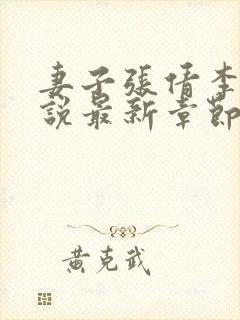 妻子張倩李
説最新章節
黃克武